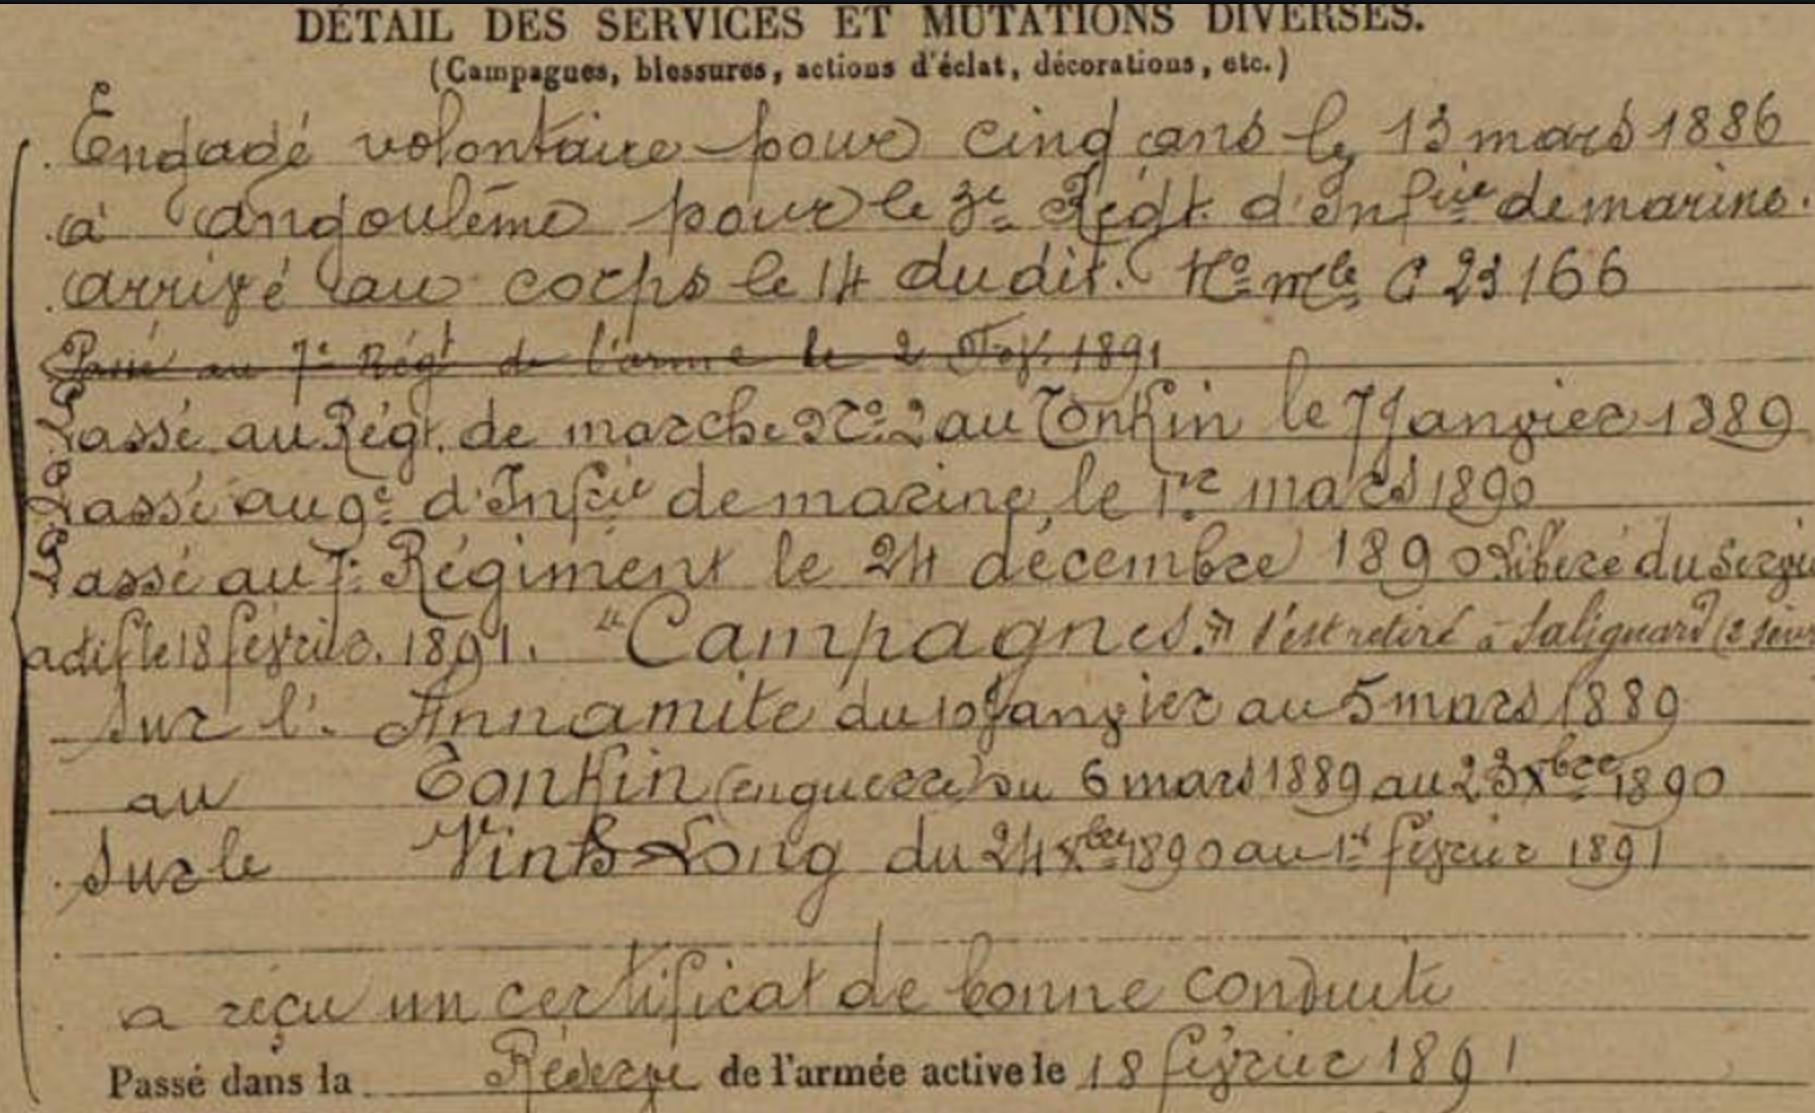 DÉTAIL DES SERVICES ET MUTATIONS DIVERSES.
(Campagnes, blessures, actions d'éclat, décorations, etc.)
Engagé volontaire pour cinq ans le 13 mars 1886
à angoulême pour le 3e Régt d'Infrie de marine.
arrivé au corps le 14 dudit. No mle C 23166
Passé au 7e Régt de l'arme le 2 Fév. 1891
Passé au Régt. de marche No 2 au Tonkin le 7 Janvier 1889
Passé au 9e d'Infrie de marine le 1er mars 1890
Passé au 7e Régiment le 24 décembre 1890 Libéré du Servi
actif le 18 février. 1891. "Campagnes." S'est retiré à Salignard (
Sur l'. Annamite du 10 Janvier au 5 mars 1889
au Tonkin (en guerre) du 6 mars 1889 au 23 Xbre 1890
Sur le Vinh-Long du 24 Xbre 1890 au 1er février 1891
a reçu un certificat de bonne conduite
Passé dans la Réserve de l'armée active le 18 février 1891